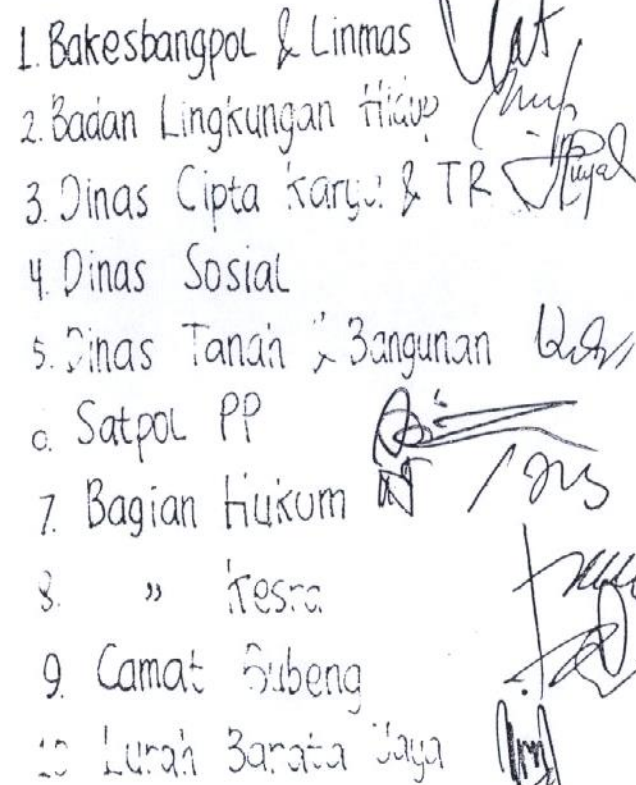 1. Bakesbangpol & Linmas
2. Badan Lingkungan Hidup
3. Dinas Cipta Karya & TR
4. Dinas Sosial
5. Dinas Tanah & Bangunan
6. Satpol PP
7. Bagian Hukum
8. " Kesra
9. Camat Gubeng
10 Lurah Barata Jaya